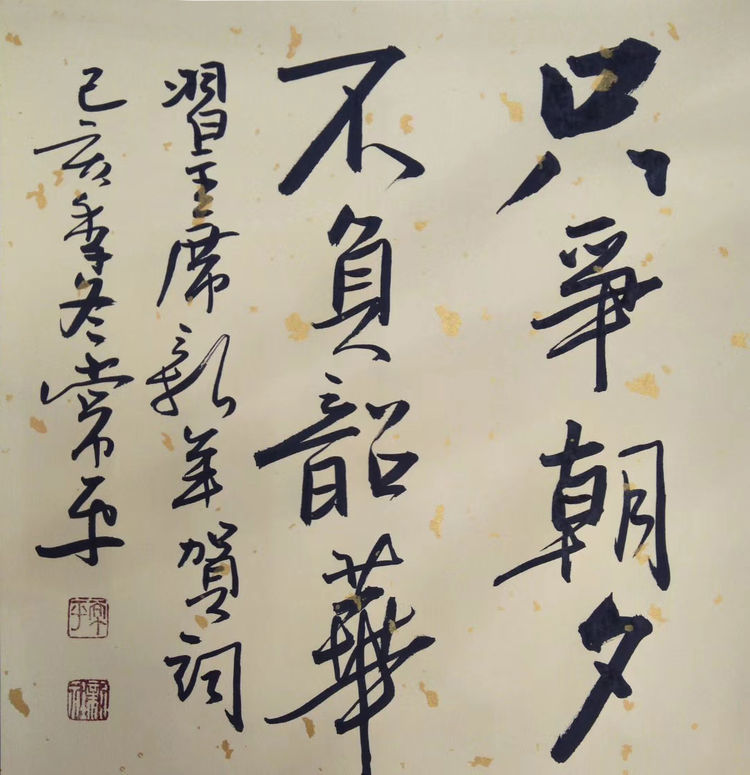 只爭朝夕
不負韶華
習主席新年賀詞
己亥季冬常平